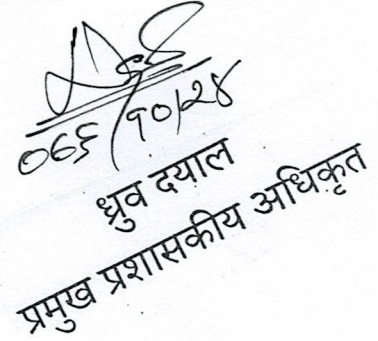 ०६६/१०/२४
ध्रुव दयाल
प्रमुख प्रशासकीय अधिकृत